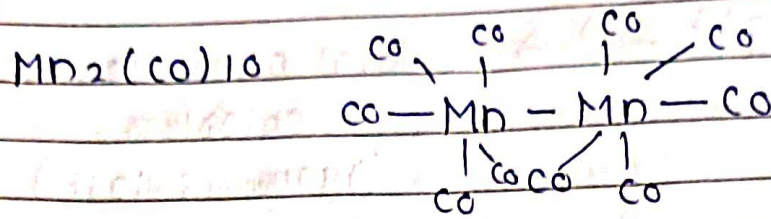 Mn2(CO)10
CO CO CO CO
CO—Mn—Mn—CO
CO CO CO CO